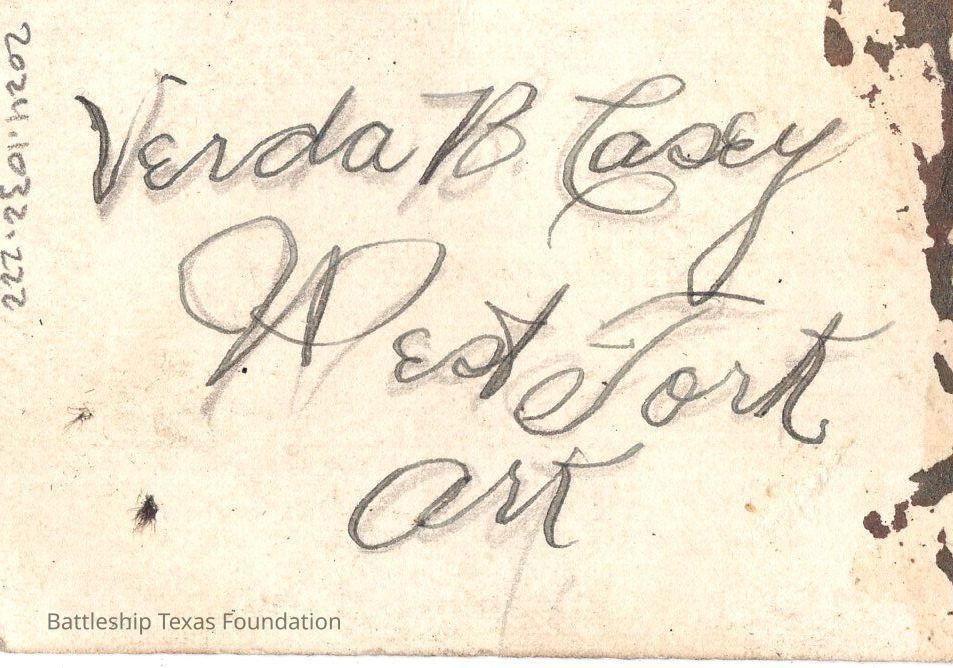 2024.1032.222
Verda B Casey
West Fork
Ark
Battleship Texas Foundation